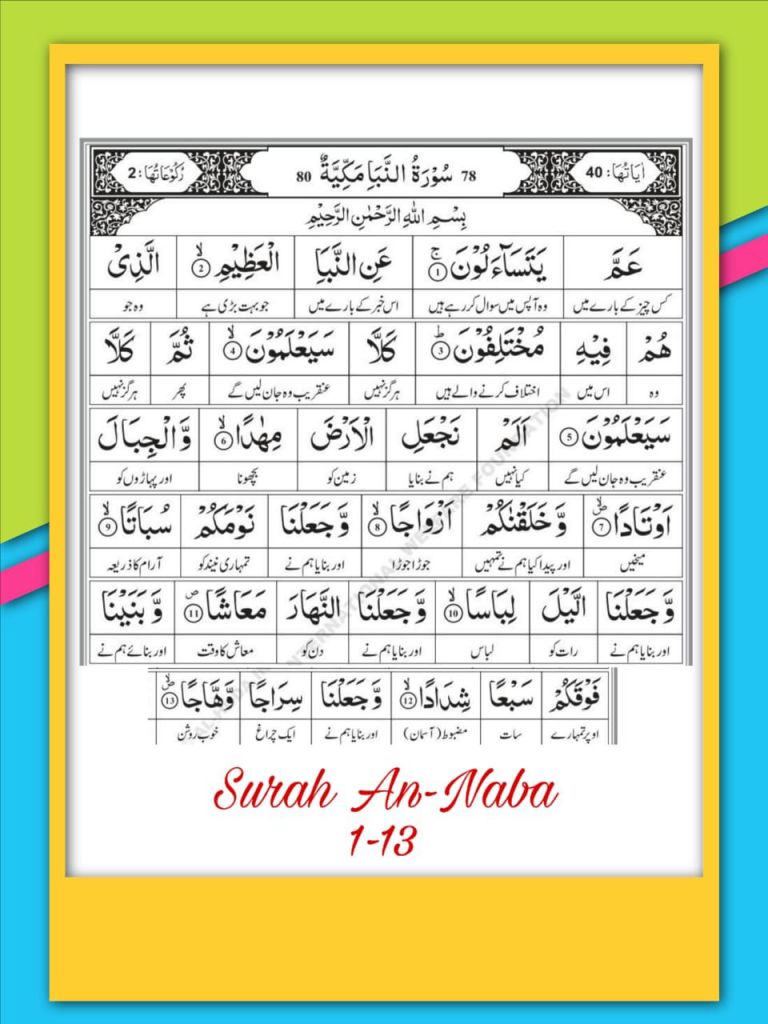 اٰيَاتُهَا: 40 78 سُوْرَةُ النَّبَاِ مَكِّيَّةٌ 80 رُكُوْعَاتُهَا: 2
بِسْمِ اللّٰهِ الرَّحْمٰنِ الرَّحِيْمِ
عَمَّ يَتَسَآءَلُوْنَ ۚ ① عَنِ النَّبَاِ الْعَظِيْمِ ۙ ② الَّذِىْ
کس چیز کے بارے میں وہ آپس میں سوال کر رہے ہیں اس خبر کے بارے میں جو بہت بڑی ہے وہ جو
هُمْ فِيْهِ مُخْتَلِفُوْنَ ؕ ③ كَلَّا سَيَعْلَمُوْنَ ۙ ④ ثُمَّ كَلَّا
وہ اس میں اختلاف کرنے والے ہیں ہرگز نہیں عنقریب وہ جان لیں گے پھر ہرگز نہیں
سَيَعْلَمُوْنَ ⑤ اَلَمْ نَجْعَلِ الْاَرْضَ مِهٰدًا ۙ ⑥ وَّالْجِبَالَ
عنقریب وہ جان لیں گے کیا نہیں ہم نے بنایا زمین کو بچھونا اور پہاڑوں کو
اَوْتَادًا ۪ۙ ⑦ وَّخَلَقْنٰكُمْ اَزْوَاجًا ۙ ⑧ وَّجَعَلْنَا نَوْمَكُمْ سُبَاتًا ۙ ⑨
میخیں اور پیدا کیا ہم نے تمہیں جوڑا جوڑا اور بنایا ہم نے تمہاری نیند کو آرام کا ذریعہ
وَّجَعَلْنَا الَّيْلَ لِبَاسًا ۙ ⑩ وَّجَعَلْنَا النَّهَارَ مَعَاشًا ۪ ⑪ وَّبَنَيْنَا
اور بنایا ہم نے رات کو لباس اور بنایا ہم نے دن کو معاش کا وقت اور بنائے ہم نے
فَوْقَكُمْ سَبْعًا شِدَادًا ۙ ⑫ وَّجَعَلْنَا سِرَاجًا وَّهَّاجًا ۪ۙ ⑬
اوپر تمہارے سات مضبوط (آسمان) اور بنایا ہم نے ایک چراغ خوب روشن
Surah An-Naba
1-13